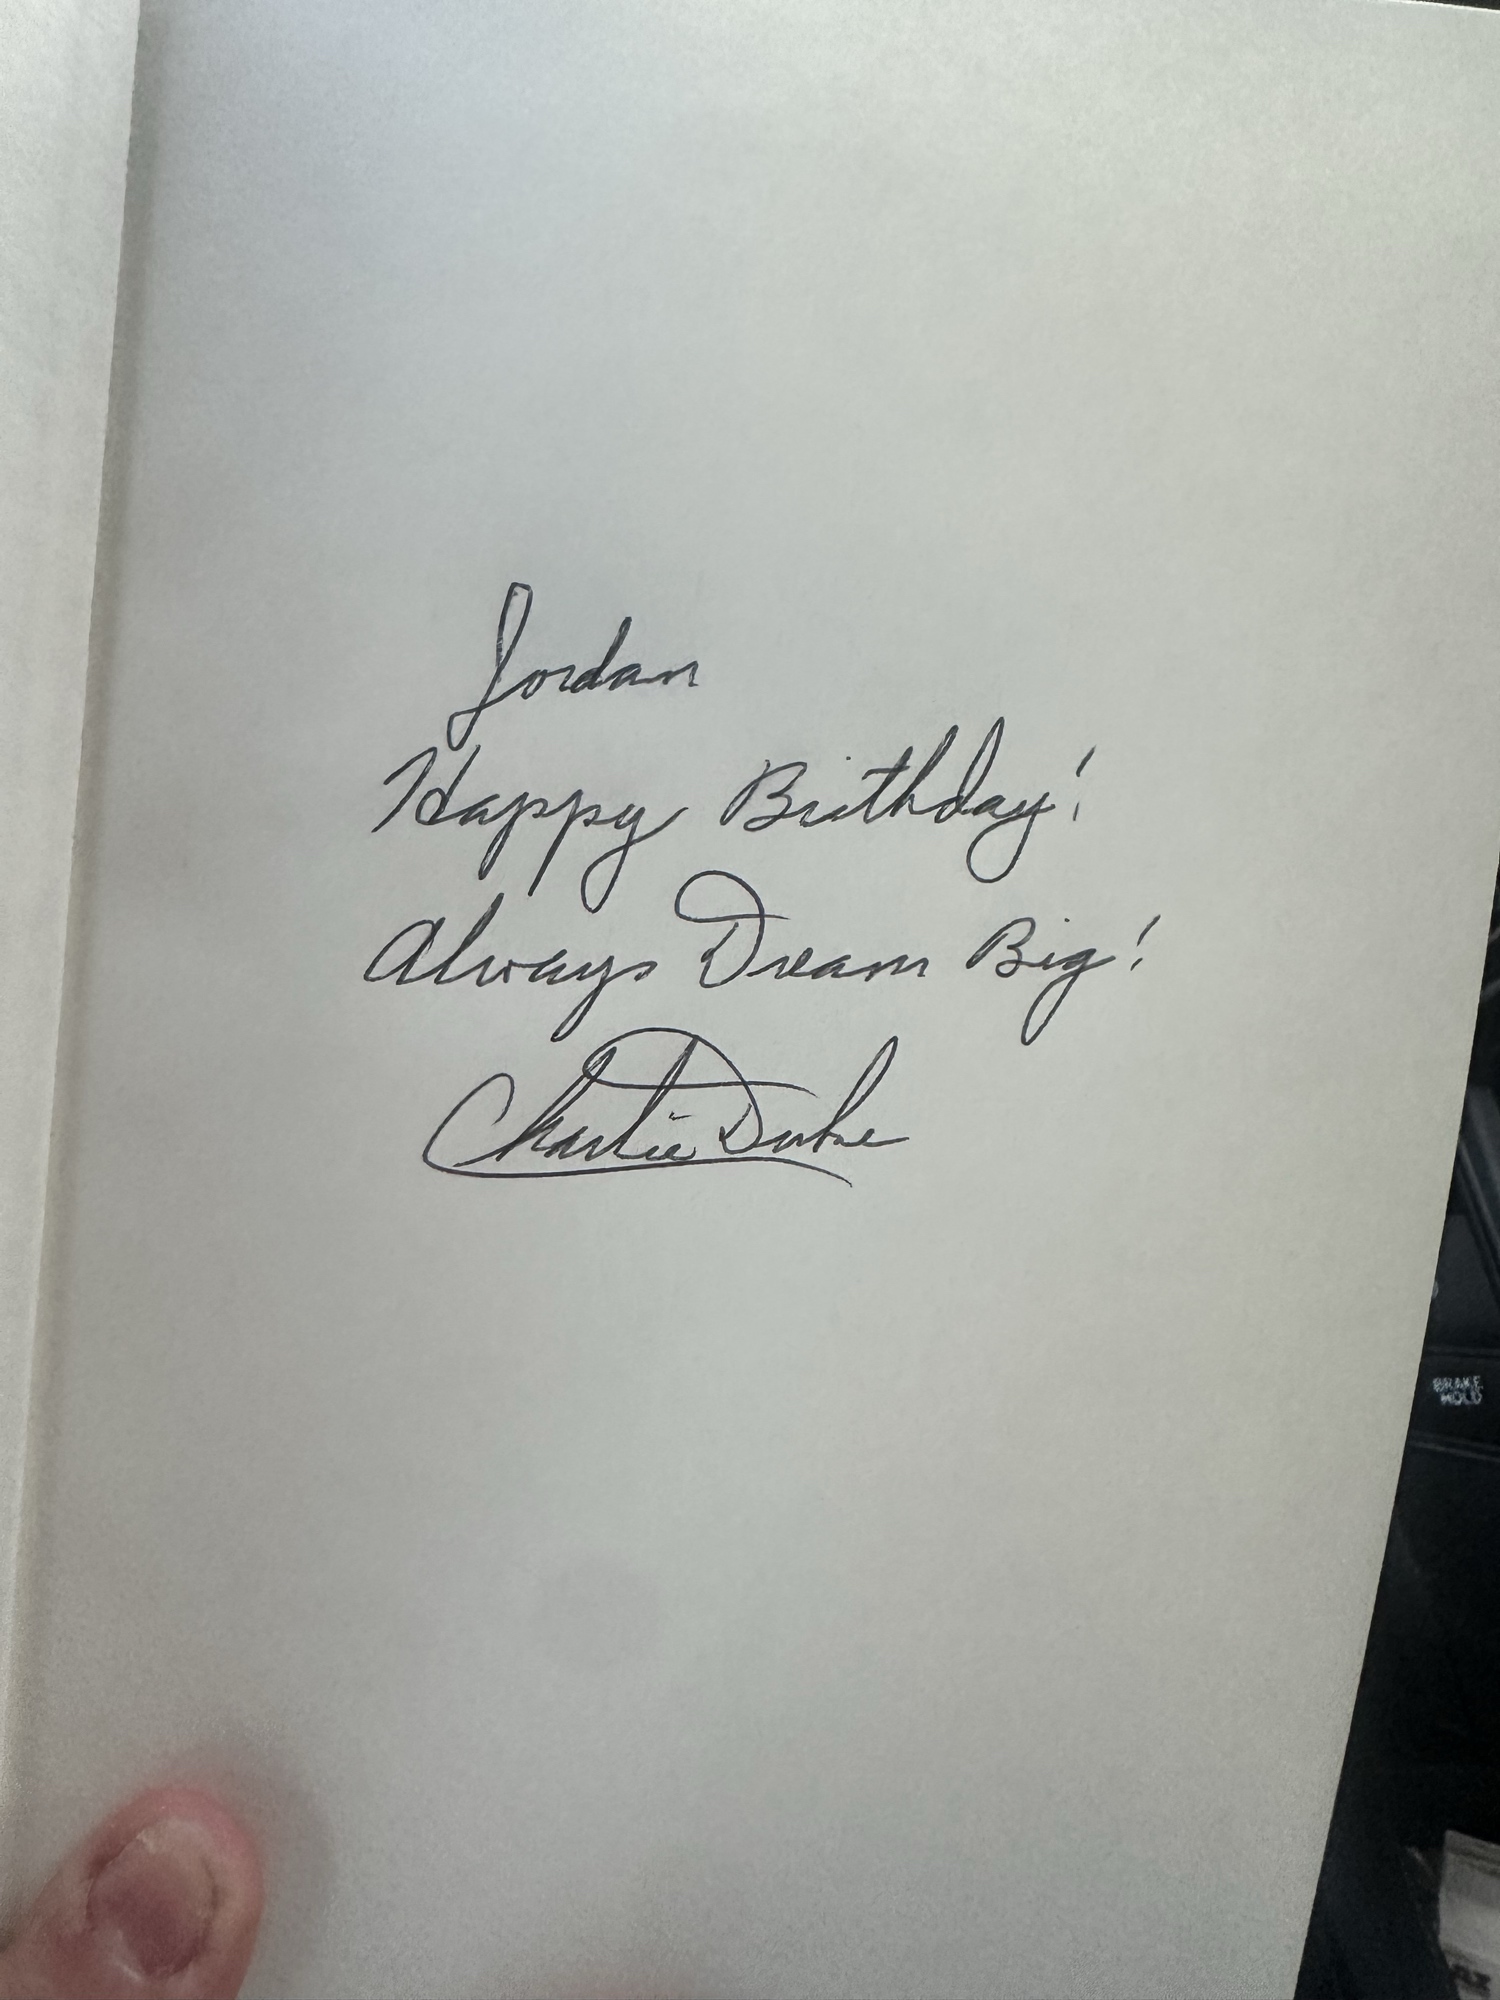 Jordan
Happy Birthday!
Always Dream Big!
Charlie Duke
BRAKE
HOLD